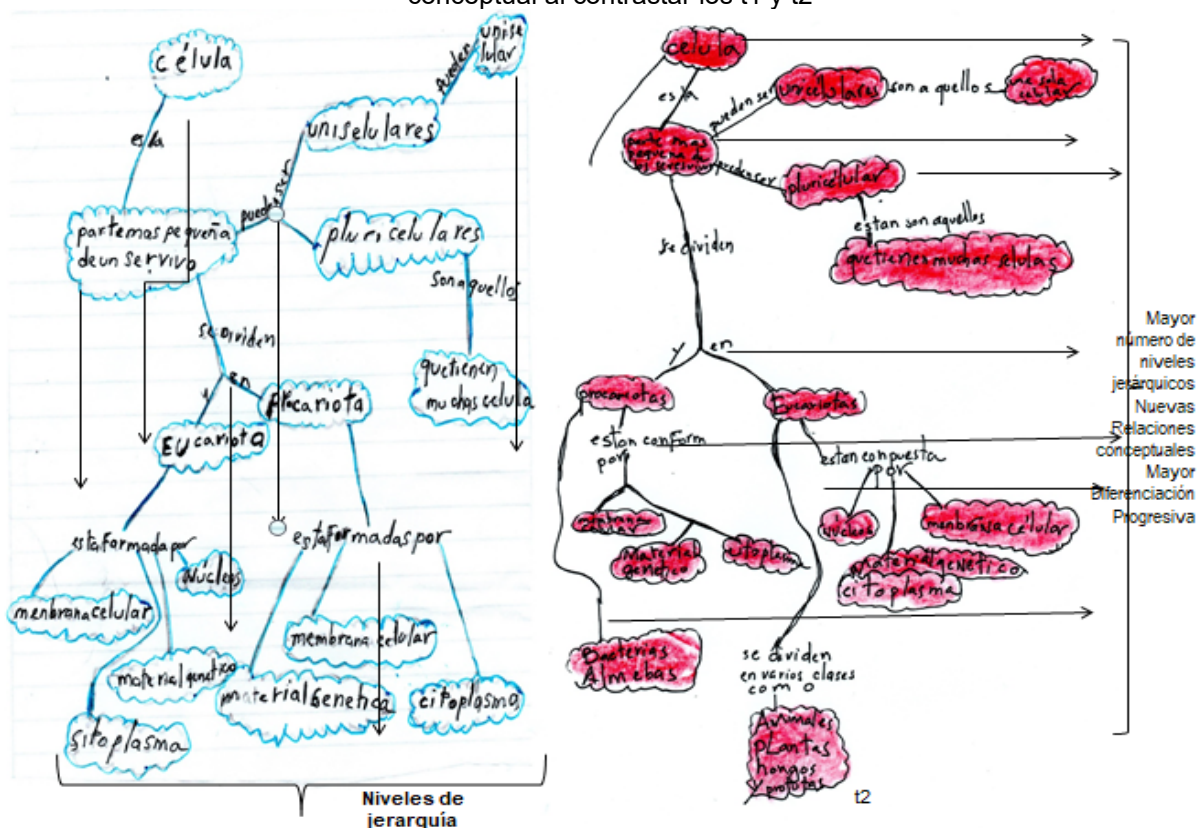 conceptual al contrastar los t1 y t2
célula
es la
partemas pequeña
deun servivo
pueden ser
uniselulares
pueden
unise
lular
pluricelulares
Sonaquellos
quetienen
muchas celula
se dividen
y
en
EUcariota
Procariota
estaformada por
menbranacelular
sitoplasma
material genetico
Núcleos
estaFormadas por
material Genetica
membrana celular
citoplasma
Niveles de
jerarquía
celula
es la
parte mas
pequeña de
los seresvivos
pueden ser
unicelulares
son a quellos
una sola
celular
pueden ser
pluricélular
estan son aquellos
quetienen muchas selulas
se dividen
y
en
procariotas
estan conform
por
membrana
celular
Material
genetico
citoplasma
Bacterias
Almebas
Eucariotas
estan conpuesta
por
Nucleos
menbransa célular
Material genetico
citoplasma
se dividen
en varios clases
como
Animales
plantas
hongos
y protutas
t2
Mayor
número de
niveles
jerárquicos
Nuevas
Relaciones
conceptuales
Mayor
Diferenciación
Progresiva